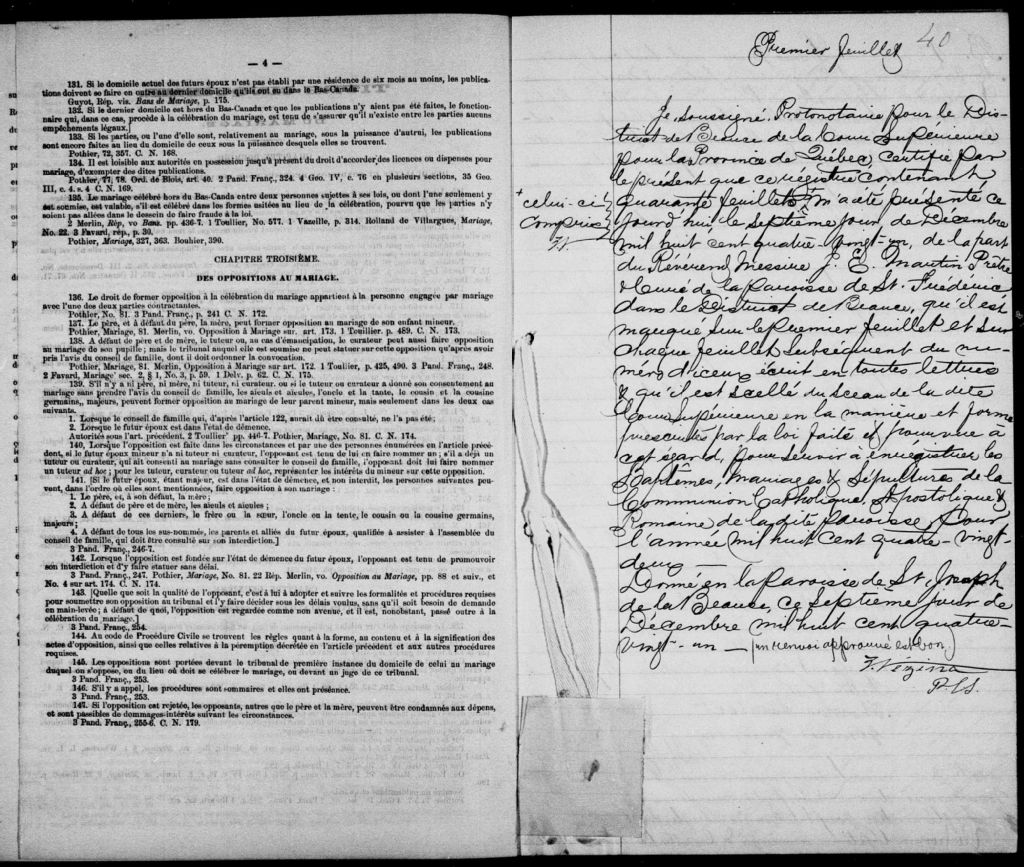 — 4 —
131. Si le domicile actuel des futurs époux n'est pas établi par une résidence de six mois au moins, les publica-
tions doivent se faire en outre au dernier domicile qu'ils ont eu dans le Bas-Canada.
Guyot, Rép. vis. Bans de Mariage, p. 175.
132. Si le dernier domicile est hors du Bas-Canada et que les publications n'y aient pas été faites, le fonction-
naire qui, dans ce cas, procède à la célébration du mariage, est tenu de s'assurer qu'il n'existe entre les parties aucuns
empêchements légaux.]
133. Si les parties, ou l'une d'elles sont, relativement au mariage, sous la puissance d'autrui, les publications
sont encore faites au lieu du domicile de ceux sous la puissance desquels elles se trouvent.
Pothier, 72, 357. C. N. 168.
134. Il est loisible aux autorités en possession jusqu'à présent du droit d'accorder des licences ou dispenses pour
mariage, d'exempter des dites publications.
Pothier, 77, 78. Ord. de Blois, art. 40. 2 Pand. Franç., 324. 4 Geo. IV, c. 76 en plusieurs sections, 35 Geo.
III, c. 4. s. 4 C. N. 169.
135. Le mariage célébré hors du Bas-Canada entre deux personnes sujettes à ses lois, ou dont l'une seulement y
est soumise, est valable, s'il est célébré dans les formes usitées au lieu de la célébration, pourvu que les parties n'y
soient pas allées dans le dessein de faire fraude à la loi.
2 Merlin, Rép, vo Bans. pp. 436-7. 1 Toulier, No. 577. 1 Vazeille, p. 314. Rolland de Villargues, Mariage,
No. 22. 3 Favard, rép., p. 30.
Pothier, Mariage, 327, 363. Bouhier, 390.
CHAPITRE TROISIÈME.
DES OPPOSITIONS AU MARIAGE.
136. Le droit de former opposition à la célébration du mariage appartient à la personne engagée par mariage
avec l'une des deux parties contractantes.
Pothier, No. 81. 3 Pand. Franç., p. 241 C. N. 172.
137. Le père, et à défaut du père, la mère, peut former opposition au mariage de son enfant mineur.
Pothier, Mariage, 81. Merlin, vo. Opposition à Mariage sur. art. 173. 1 Touillier. p. 489. C. N. 173.
138. A défaut de père et de mère, le tuteur ou, au cas d'émancipation, le curateur peut aussi faire opposition
au mariage de son pupille; mais le tribunal auquel elle est soumise ne peut statuer sur cette opposition qu'après avoir
pris l'avis du conseil de famille, dont il doit ordonner la convocation.
Pothier, Mariage, 81. Merlin, Opposition à Mariage sur art. 172. 1 Toulier, p. 425, 490. 3 Pand. Franç., 248.
2 Favard, Mariage' sec. 2, § 1, No. 3, p. 59. 1 Delv. p. 62. C. N. 175.
139. S'il n'y a ni père, ni mère, ni tuteur, ni curateur. ou si le tuteur ou curateur a donné son consentement au
mariage sans prendre l'avis du conseil de famille, les aïeuls et aïeules, l'oncle et la tante, le cousin et la cousine
germains, majeurs, peuvent former opposition au mariage de leur parent mineur, mais seulement dans les deux cas
suivants.
1. Lorsque le conseil de famille qui, d'après l'article 122, aurait dû être consulté, ne l'a pas été;
2. Lorsque le futur époux est dans l'état de démence.
Autorités sous l'art. précédent. 2 Toullier' pp. 446-7. Pothier, Mariage, No. 81. C. N. 174.
140. Lorsque l'opposition est faite dans les circonstances et par une des personnes énumérées en l'article précé-
dent, si le futur époux mineur n'a ni tuteur ni curateur, l'opposant est tenu de lui en faire nommer un; s'il a déjà un
tuteur ou curateur, qui ait consenti au mariage sans consulter le conseil de famille, l'opposant doit lui faire nommer
un tuteur ad hoc; pour les tuteur, curateur ou tuteur ad hoc, représenter les intérêts du mineur sur cette opposition.
141. [Si le futur époux, étant majeur, est dans l'état de démence, et non interdit, les personnes suivantes peu-
vent, dans l'ordre où elles sont mentionnées, faire opposition à son mariage:
1. Le père, et, à son défaut, la mère;
2. A défaut de père et de mère, les aïeuls et aïeules;
3. A défaut de ces derniers, le frère ou la sœur, l'oncle ou la tente, le cousin ou la cousine germains,
majeurs;
4. A défaut de tous les sus-nommés, les parents et alliés du futur époux, qualifiés à assister à l'assemblée du
conseil de famille, qui doit être consulté sur son interdiction.]
3 Pand. Franç., 246-7.
142. Lorsque l'opposition est fondée sur l'état de démence du futur époux, l'opposant est tenu de promouvoir
son interdiction et d'y faire statuer sans délai.
3 Pand. Franç., 247. Pothier, Mariage, No. 81. 22 Rép. Merlin, vo. Opposition au Mariage, pp. 88 et suiv., et
No. 4 sur art. 174. C. N. 174.
143. [Quelque soit la qualité de l'opposant, c'est à lui à adopter et suivre les formalités et procédures requises
pour soumettre son opposition au tribunal et l'y faire décider sous les délais voulus, sans qu'il soit besoin de demande
en main-levée; à défaut de quoi, l'opposition est regardée comme non avenue, et il est, nonobstant, passé outre à la
célébration du mariage.]
3 Pand. Franç., 254.
144. Au code de Procédure Civile se trouvent les règles quant à la forme, au contenu et à la signification des
actes d'opposition, ainsi que celles relatives à la péremption décrétée en l'article précédent et aux autres procédures
requises.
145. Les oppositions sont portées devant le tribunal de première instance du domicile de celui au mariage
duquel on s'oppose, ou du lieu où doit se célébrer le mariage, ou devant un juge de ce tribunal.
3 Pand. Franç., 253.
146. S'il y a appel, les procédures sont sommaires et elles ont préséance.
3 Pand. Franç., 253.
147. Si l'opposition est rejetée, les opposants, autres que le père et la mère, peuvent être condamnés aux dépens,
et sont passibles de dommages-intérêts suivant les circonstances.
3 Pand. Franç., 255-6. C. N. 179.
40
Premier feuillet
Je, soussigné, Protonotaire pour le Dis-
trict de Beauce de la Cour Supérieure
pour la Province de Québec certifie par
le présent que ce registre contenant
quarante feuillets + m'a été présenté ce
+ celui-ci
compris
F.V.
jourd'hui, le septième jour de Décembre
mil huit cent quatre-vingt-un, de la part
du Révérend Messire J. E. Martin Prêtre
& Curé de la paroisse de St. Frédéric
dans le District de Beauce, qu'il est
marqué sur le premier feuillet et sur
chaque feuillet subséquent du nu-
méro d'iceux écrit en toutes lettres
& qu'il est scellé du sceau de la dite
Cour Supérieure en la manière et forme
prescrites par la loi faite et pourvue à
cet égard, pour servir à enrégistrer les
Baptêmes, mariages & sépultures de la
Communion Catholique, Apostolique &
Romaine de la dite paroisse, pour
l'année mil huit cent quatre-vingt-
deux
Donné en la Paroisse de St. Joseph
de la Beauce, ce septième jour de
Décembre mil huit cent quatre-
vingt-un — (un renvoi approuvé est bon.)
F. Vezina
P.C.S.